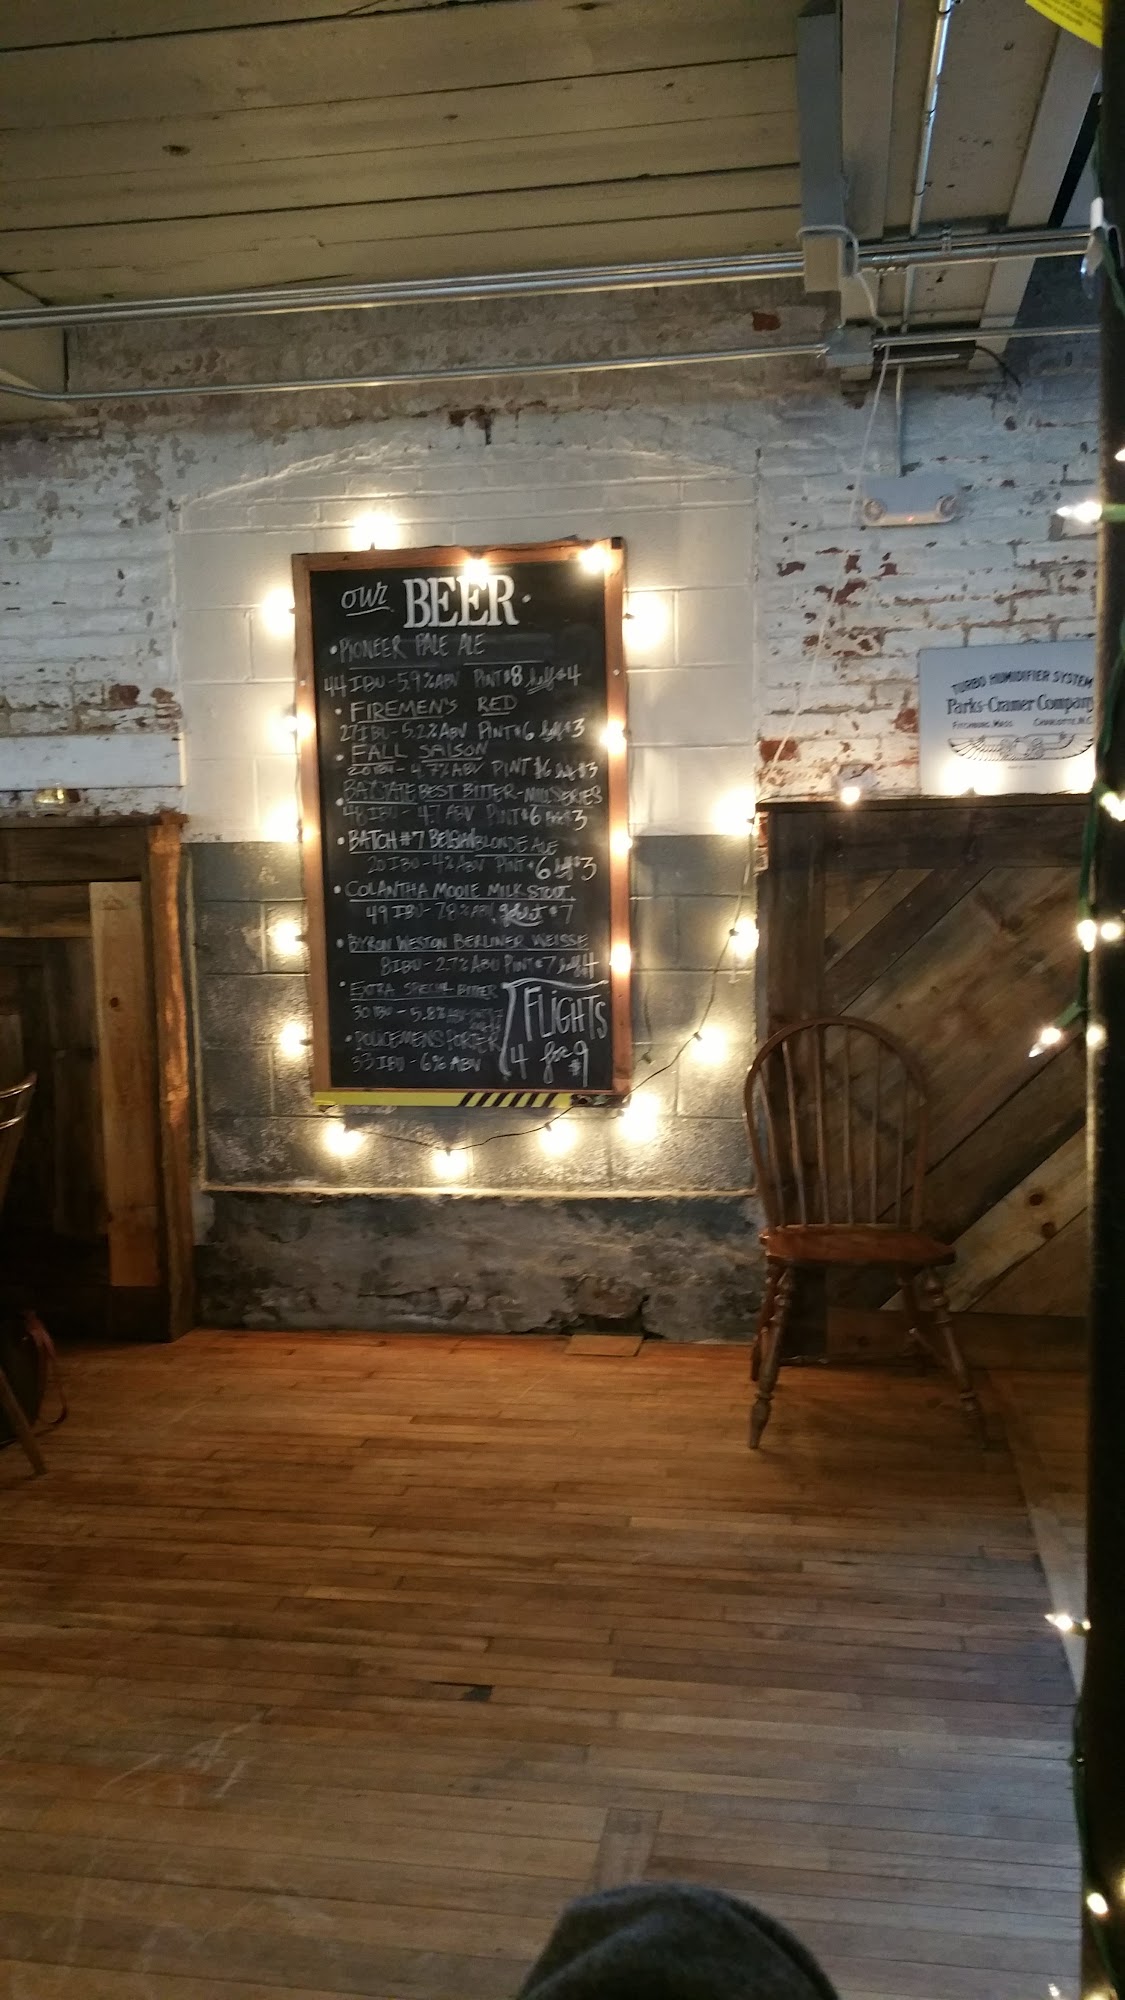 our BEER.
• PIONEER PALE ALE
44 IBU - 5.9% ABV PINT $8 half $4
• FIREMEN'S RED
27 IBU - 5.2% ABV PINT $6 half $3
• FALL SAISON
20 IBU - 4.7% ABV PINT $6 half $3
BAYSTATE BEST BITTER - MILL SERIES
48 IBU - 4.7 ABV PINT $6 half $3
• BATCH #7 BELGIAN BLONDE ALE
20 IBU - 4% ABV PINT $6 half $3
• COLANTHA MOOIE MILK STOUT
49 IBU - 7.8% ABV goblet $7
• BYRON WESTON BERLINER WEISSE
8 IBU - 2.7% ABV PINT $7 half 4
• EXTRA SPECIAL BITTER
30 IBU - 5.8% ABV
• POLICEMENS PORTER
33 IBU - 6% ABV
FLIGHTS
4 for $9
TURBO HUMIDIFIER SYSTEM
Parks-Cramer Company
FITCHBURG, MASS. CHARLOTTE, N.C.